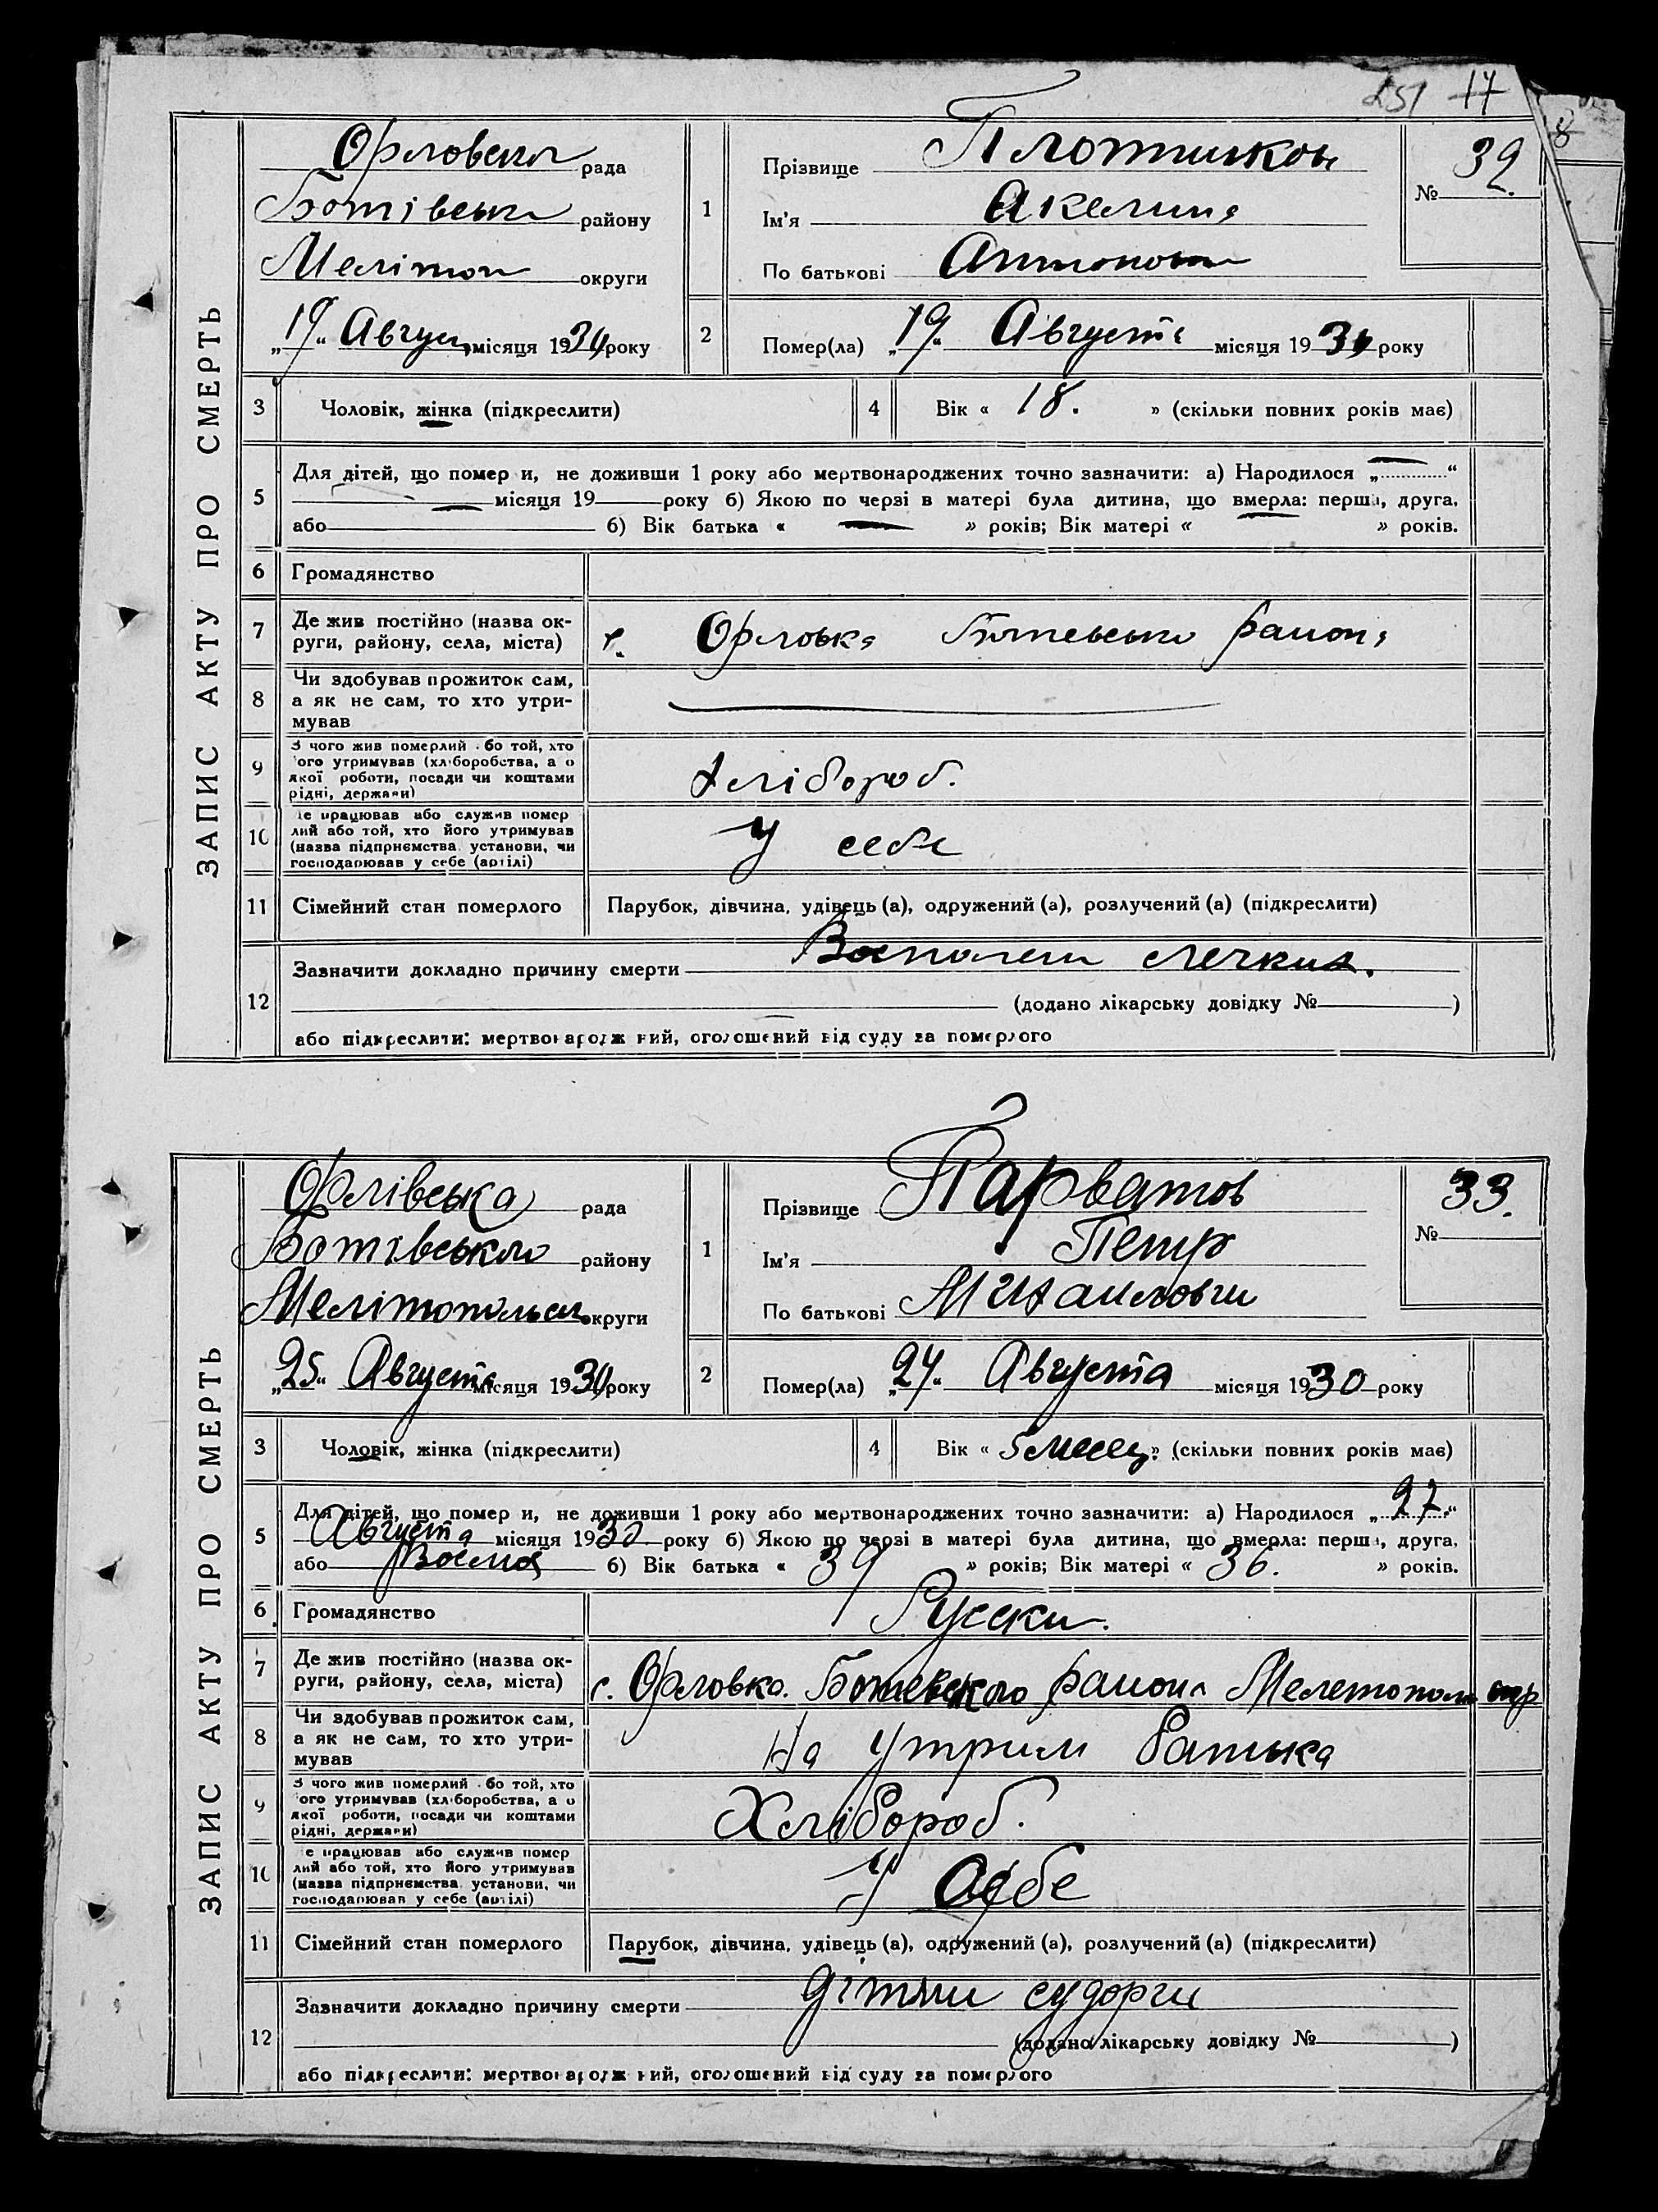 251 17
ЗАПИС АКТУ ПРО СМЕРТЬ
Орловская рада
Ботівськ району
Мелітоп округи
„19“ Август місяця 1930 року
1 Прізвище Плотников
Ім'я Акелина
По батькові Антоновна
№ 32.
2 Помер(ла) „19“ Августа місяця 1930 року
3 Чоловік, жінка (підкреслити)
4 Вік « 18. » (скільки повних років має)
5 Для дітей, що помер и, не доживши 1 року або мертвонароджених точно зазначити: а) Народилося „ “
місяця 19 року б) Якою по черзі в матері була дитина, що вмерла: перша, друга,
або б) Вік батька « » років; Вік матері « » років.
6 Громадянство
7 Де жив постійно (назва округи, району, села, міста) с. Орловка Ботиевского района
8 Чи здобував прожиток сам,
а як не сам, то хто утри-
мував
9 З чого жив померлий або той, хто
його утримував (хліборобства, а о
якої роботи, посади чи коштами
рідні, держави)
Хлібороб.
10 Де працював або служив помер
лий або той, хто його утримував
(назва підприємства, установи, чи
господарював у себе (артілі)
У себе
11 Сімейний стан померлого Парубок, дівчина, удівець (а), одружений (а), розлучений (а) (підкреслити)
12 Зазначити докладно причину смерти Воспален легких.
(додано лікарську довідку № )
або підкреслити: мертвонародж ний, оголошений від суду за померлого
ЗАПИС АКТУ ПРО СМЕРТЬ
Орлівська рада
Ботівського району
Мелітопольськ округи
„25“ Августа місяця 1930 року
1 Прізвище Парватов
Ім'я Петр
По батькові Михаилович
№ 33.
2 Помер(ла) „24“ Августа місяця 1930 року
3 Чоловік, жінка (підкреслити)
4 Вік « 5 месец. » (скільки повних років має)
5 Для дітей, що помер и, не доживши 1 року або мертвонароджених точно зазначити: а) Народилося „27“
Августа місяця 1930 року б) Якою по черзі в матері була дитина, що вмерла: перша, друга,
або б) Вік батька « 39 » років; Вік матері « 36. » років.
6 Громадянство Русски.
7 Де жив постійно (назва ок-
руги, району, села, міста) с. Орловка. Ботиевского района Мелетополь окр
8 Чи здобував прожиток сам,
а як не сам, то хто утри-
мував
На утрим батька
9 З чого жив померлий або той, хто
його утримував (хліборобства, а о
якої роботи, посади чи коштами
рідні, держави)
Хлібороб.
10 Де працював або служив помер
лий або той, хто його утримував
(назва підприємства, установи, чи
господарював у себе (артілі)
У себе
11 Сімейний стан померлого Парубок, дівчина, удівець (а), одружений (а), розлучений (а) (підкреслити)
12 Зазначити докладно причину смерти дітячи судорги
(додано лікарську довідку № )
або підкреслити: мертвонародж ний, оголошений від суду за померлого